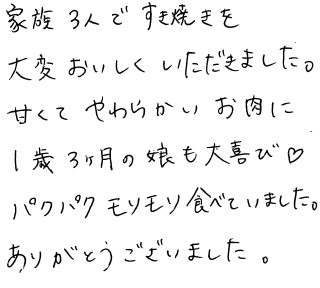 家族3人ですき焼きを
大変おいしくいただきました。
甘くてやわらかいお肉に
1歳3ヶ月の娘も大喜び♡
パクパクモリモリ食べていました。
ありがとうございました。